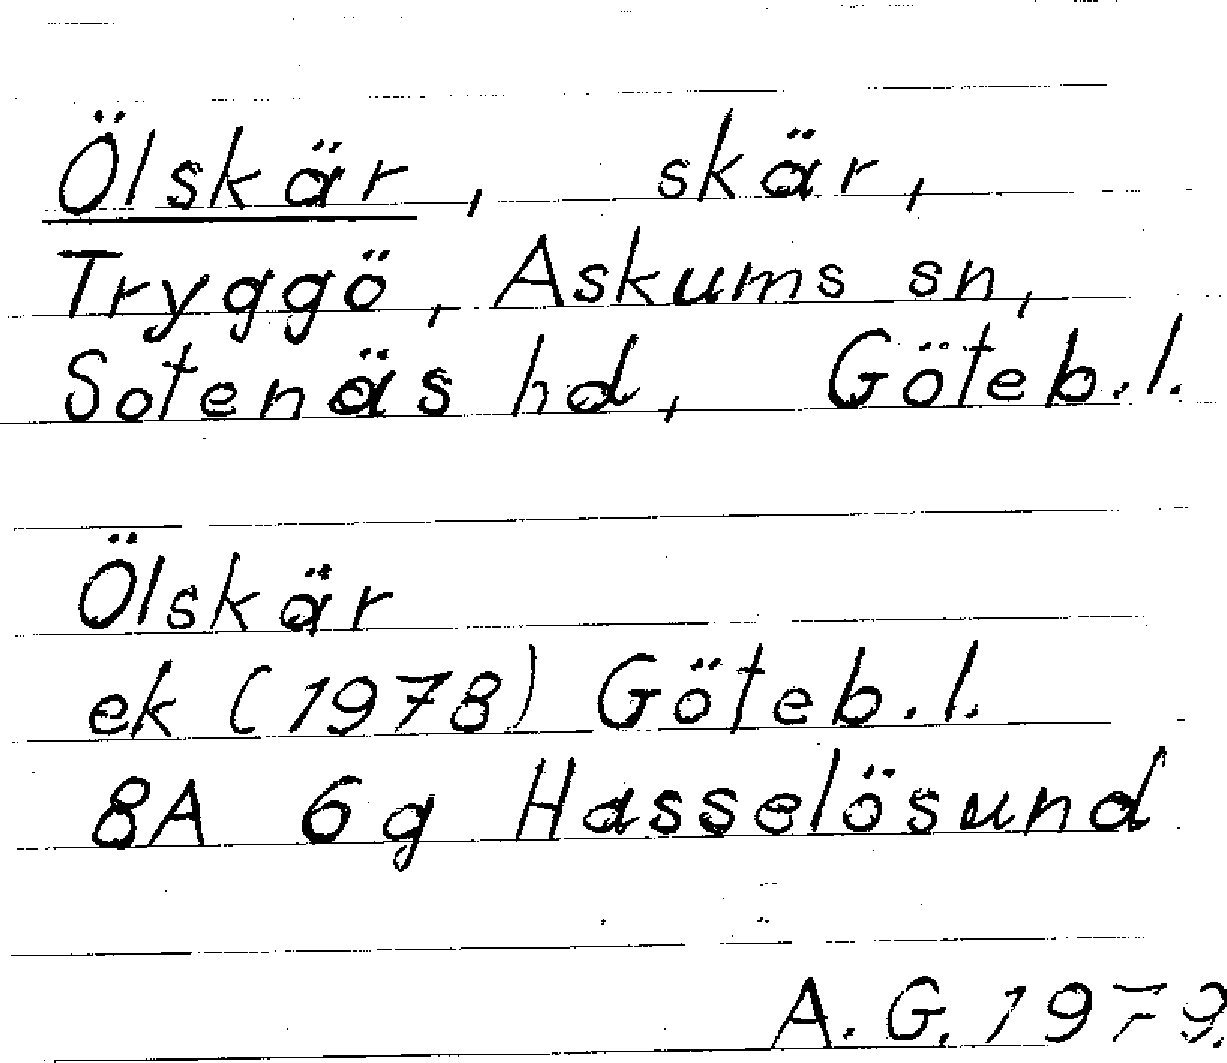 Ölskär, skär,
Tryggö, Askums sn,
Sotenäs hd, Göteb.l.
Ölskär
ek (1978) Göteb.l.
8A 6g Hasselösund
A.G. 1979.